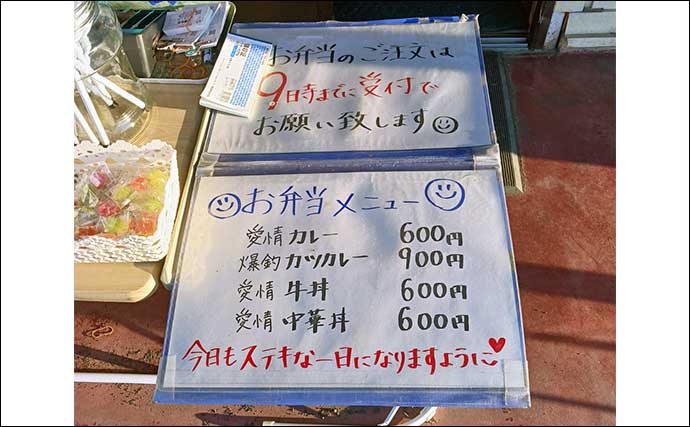 お弁当のご注文は
9時までに受付で
お願い致します
お弁当メニュー
愛情 カレー 600円
爆釣 カツカレー 900円
愛情 牛丼 600円
愛情 中華丼 600円
今日もステキな一日になりますように♥